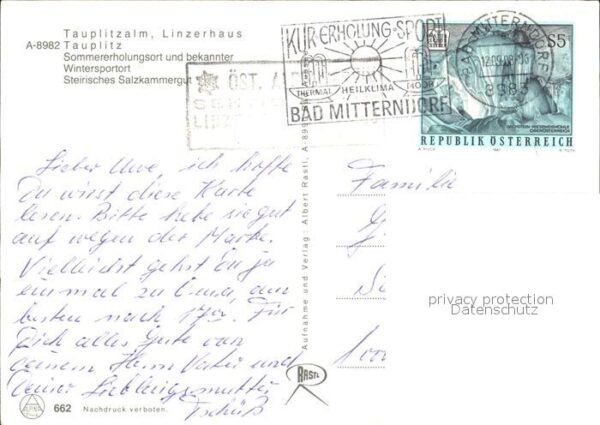 Tauplitzalm, Linzerhaus
A-8982 Tauplitz
Sommererholungsort und bekannter
Wintersportort
Steirisches Salzkammergut
KUR·ERHOLUNG·SPORT
THERMAL HEILKLIMA MOOR
BAD MITTERNDORF
ÖST. A
BAD MITTERNDORF
8983
S5
REPUBLIK ÖSTERREICH
Lieber Uwe, ich hoffe
Du wirst diese Karte
lesen. Bitte hebe sie gut
auf wegen der Marke.
Vielleicht gehst Du ja
einmal zu Oma, am
besten nach Für
Dich alles Gute von
deinem Herrn Vater und
Deiner Lieblingsmutter
Tschüß
Familie
Aufnahme und Verlag: Albert Rastl, A-899
RASTL
privacy protection
Datenschutz
662 Nachdruck verboten.